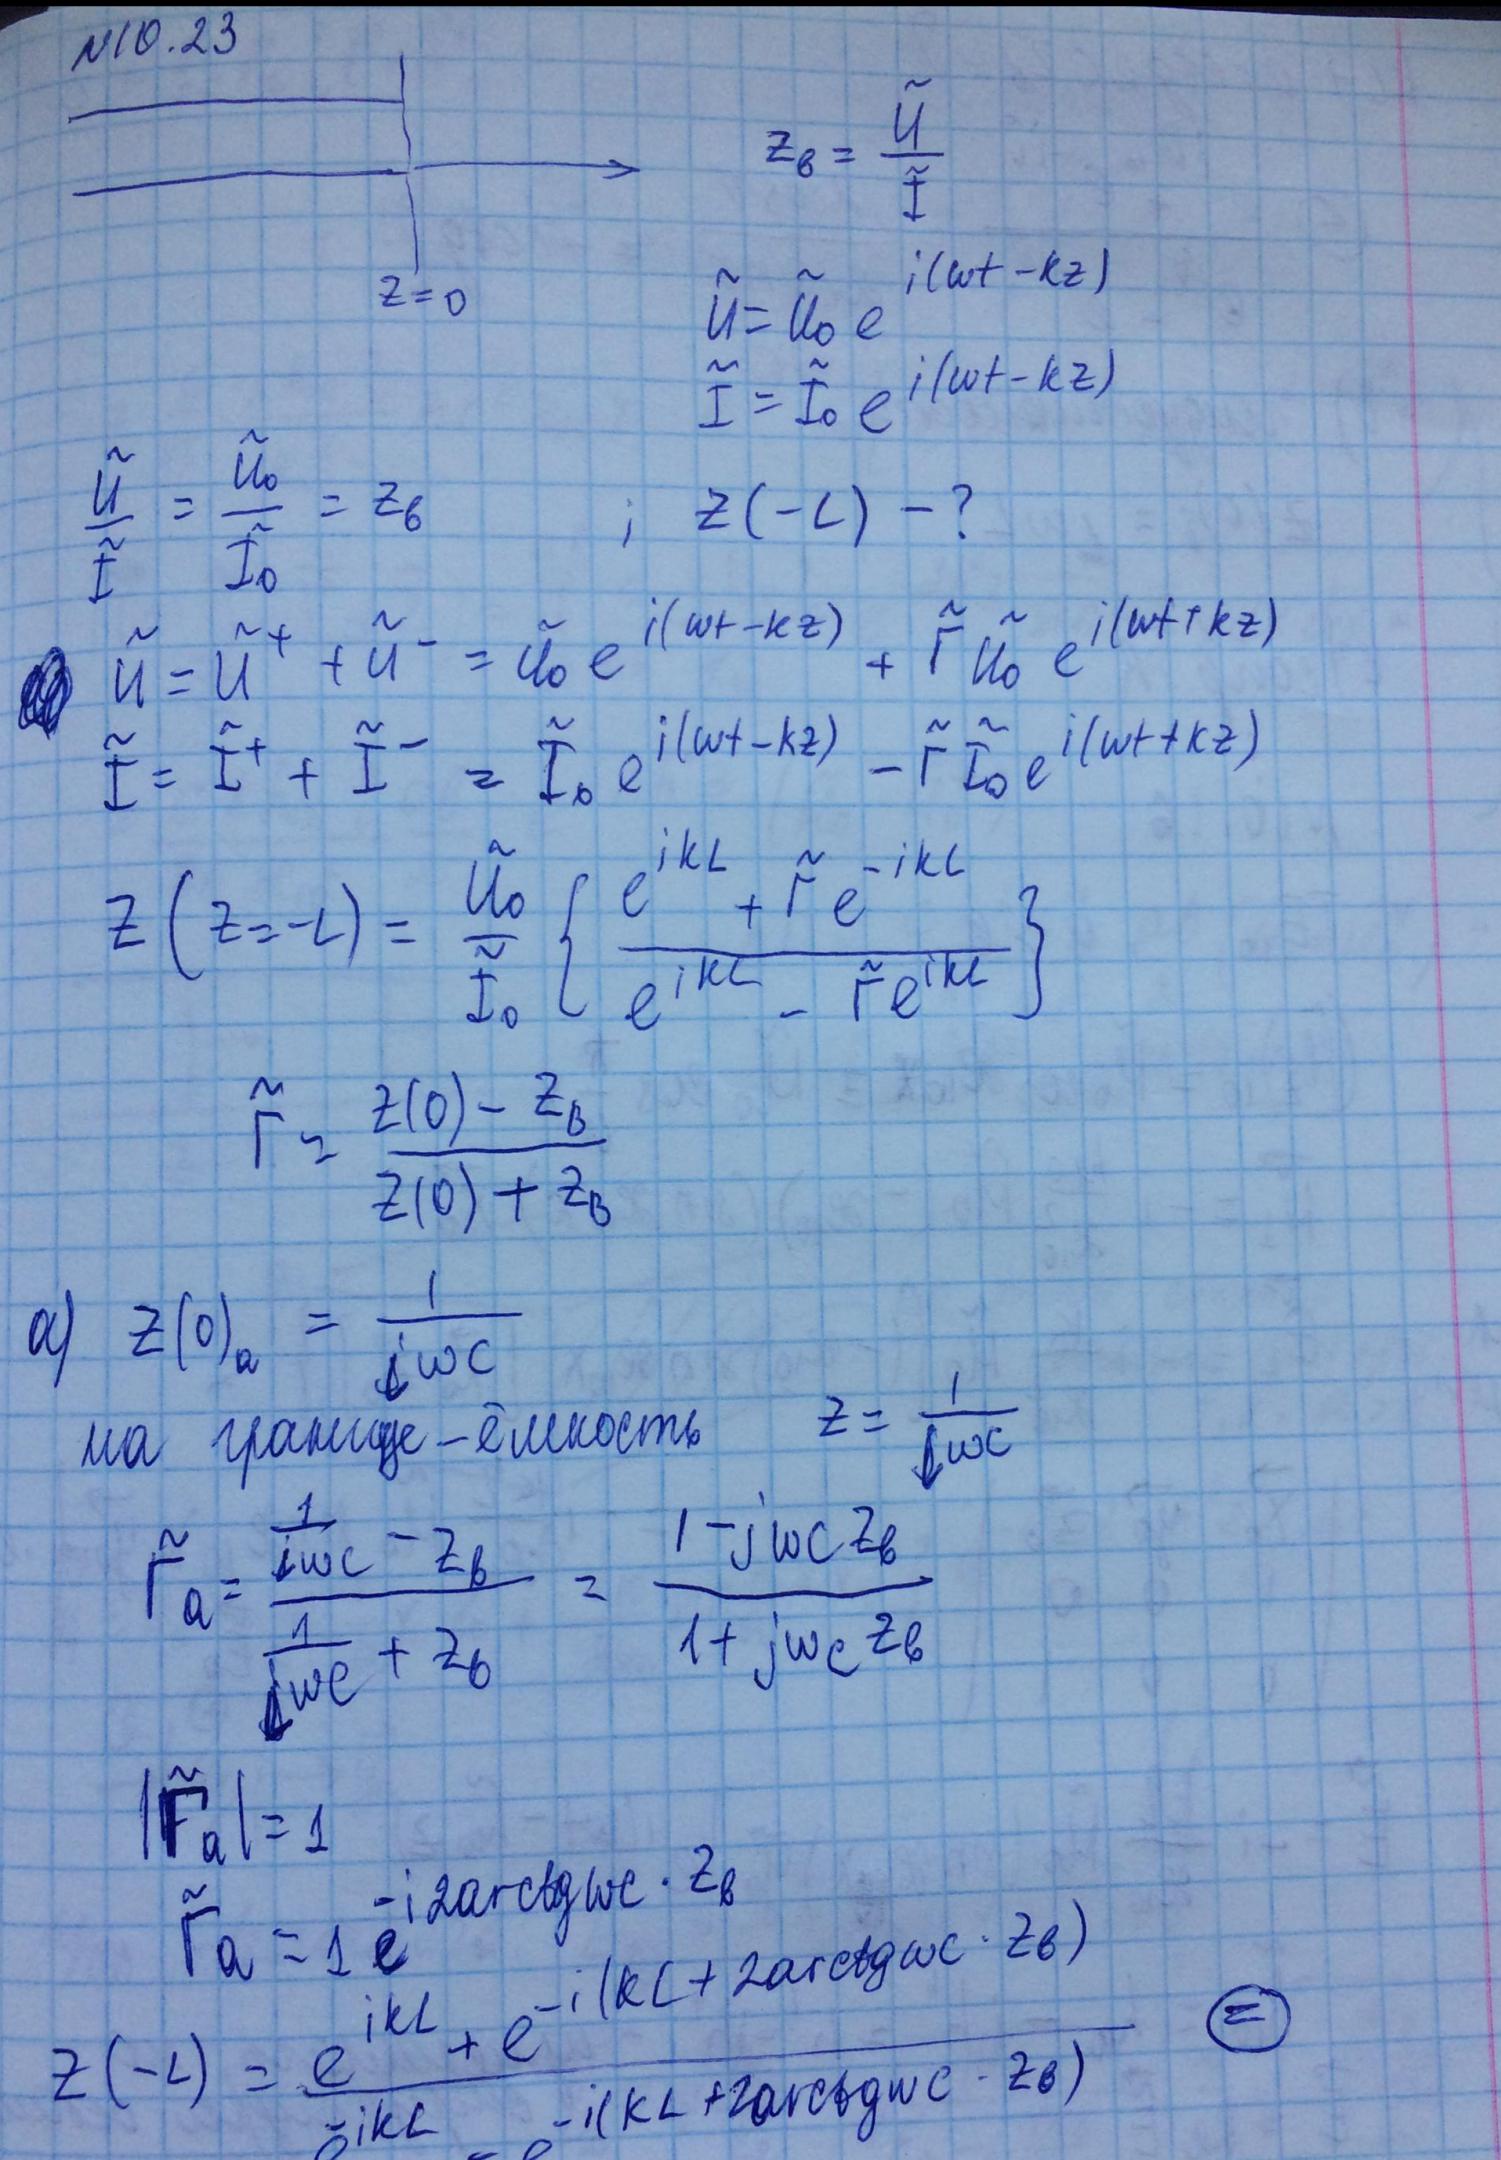 N10.23
z=0
z_в = Ũ/Ĩ
Ũ = Ũ₀ e^{i(ωt-kz)}
Ĩ = Ĩ₀ e^{i(ωt-kz)}
Ũ/Ĩ = Ũ₀/Ĩ₀ = z_в ; Z(-L) - ?
Ũ = Ũ⁺ + Ũ⁻ = Ũ₀ e^{i(ωt-kz)} + Γ̃ Ũ₀ e^{i(ωt+kz)}
Ĩ = Ĩ⁺ + Ĩ⁻ = Ĩ₀ e^{i(ωt-kz)} - Γ̃ Ĩ₀ e^{i(ωt+kz)}
Z(z=-L) = Ũ₀/Ĩ₀ { (e^{ikL} + Γ̃ e^{-ikL}) / (e^{ikL} - Γ̃ e^{ikL}) }
Γ̃ = (Z(0) - Z_в) / (Z(0) + Z_в)
а) Z(0)_a = 1/(jωC)
на границе - ёмкость Z = 1/(jωC)
Γ̃_a = (1/(jωC) - Z_в) / (1/(jωC) + Z_в) = (1 - jωC Z_в) / (1 + jωC Z_в)
|Γ̃_a| = 1
Γ̃_a = 1 e^{-i2arctgωC · Z_в}
Z(-L) = (e^{ikL} + e^{-i(kL + 2arctgωC · Z_в)}) / (e^{ikL} - e^{-i(kL + 2arctgωC · Z_в)}) =